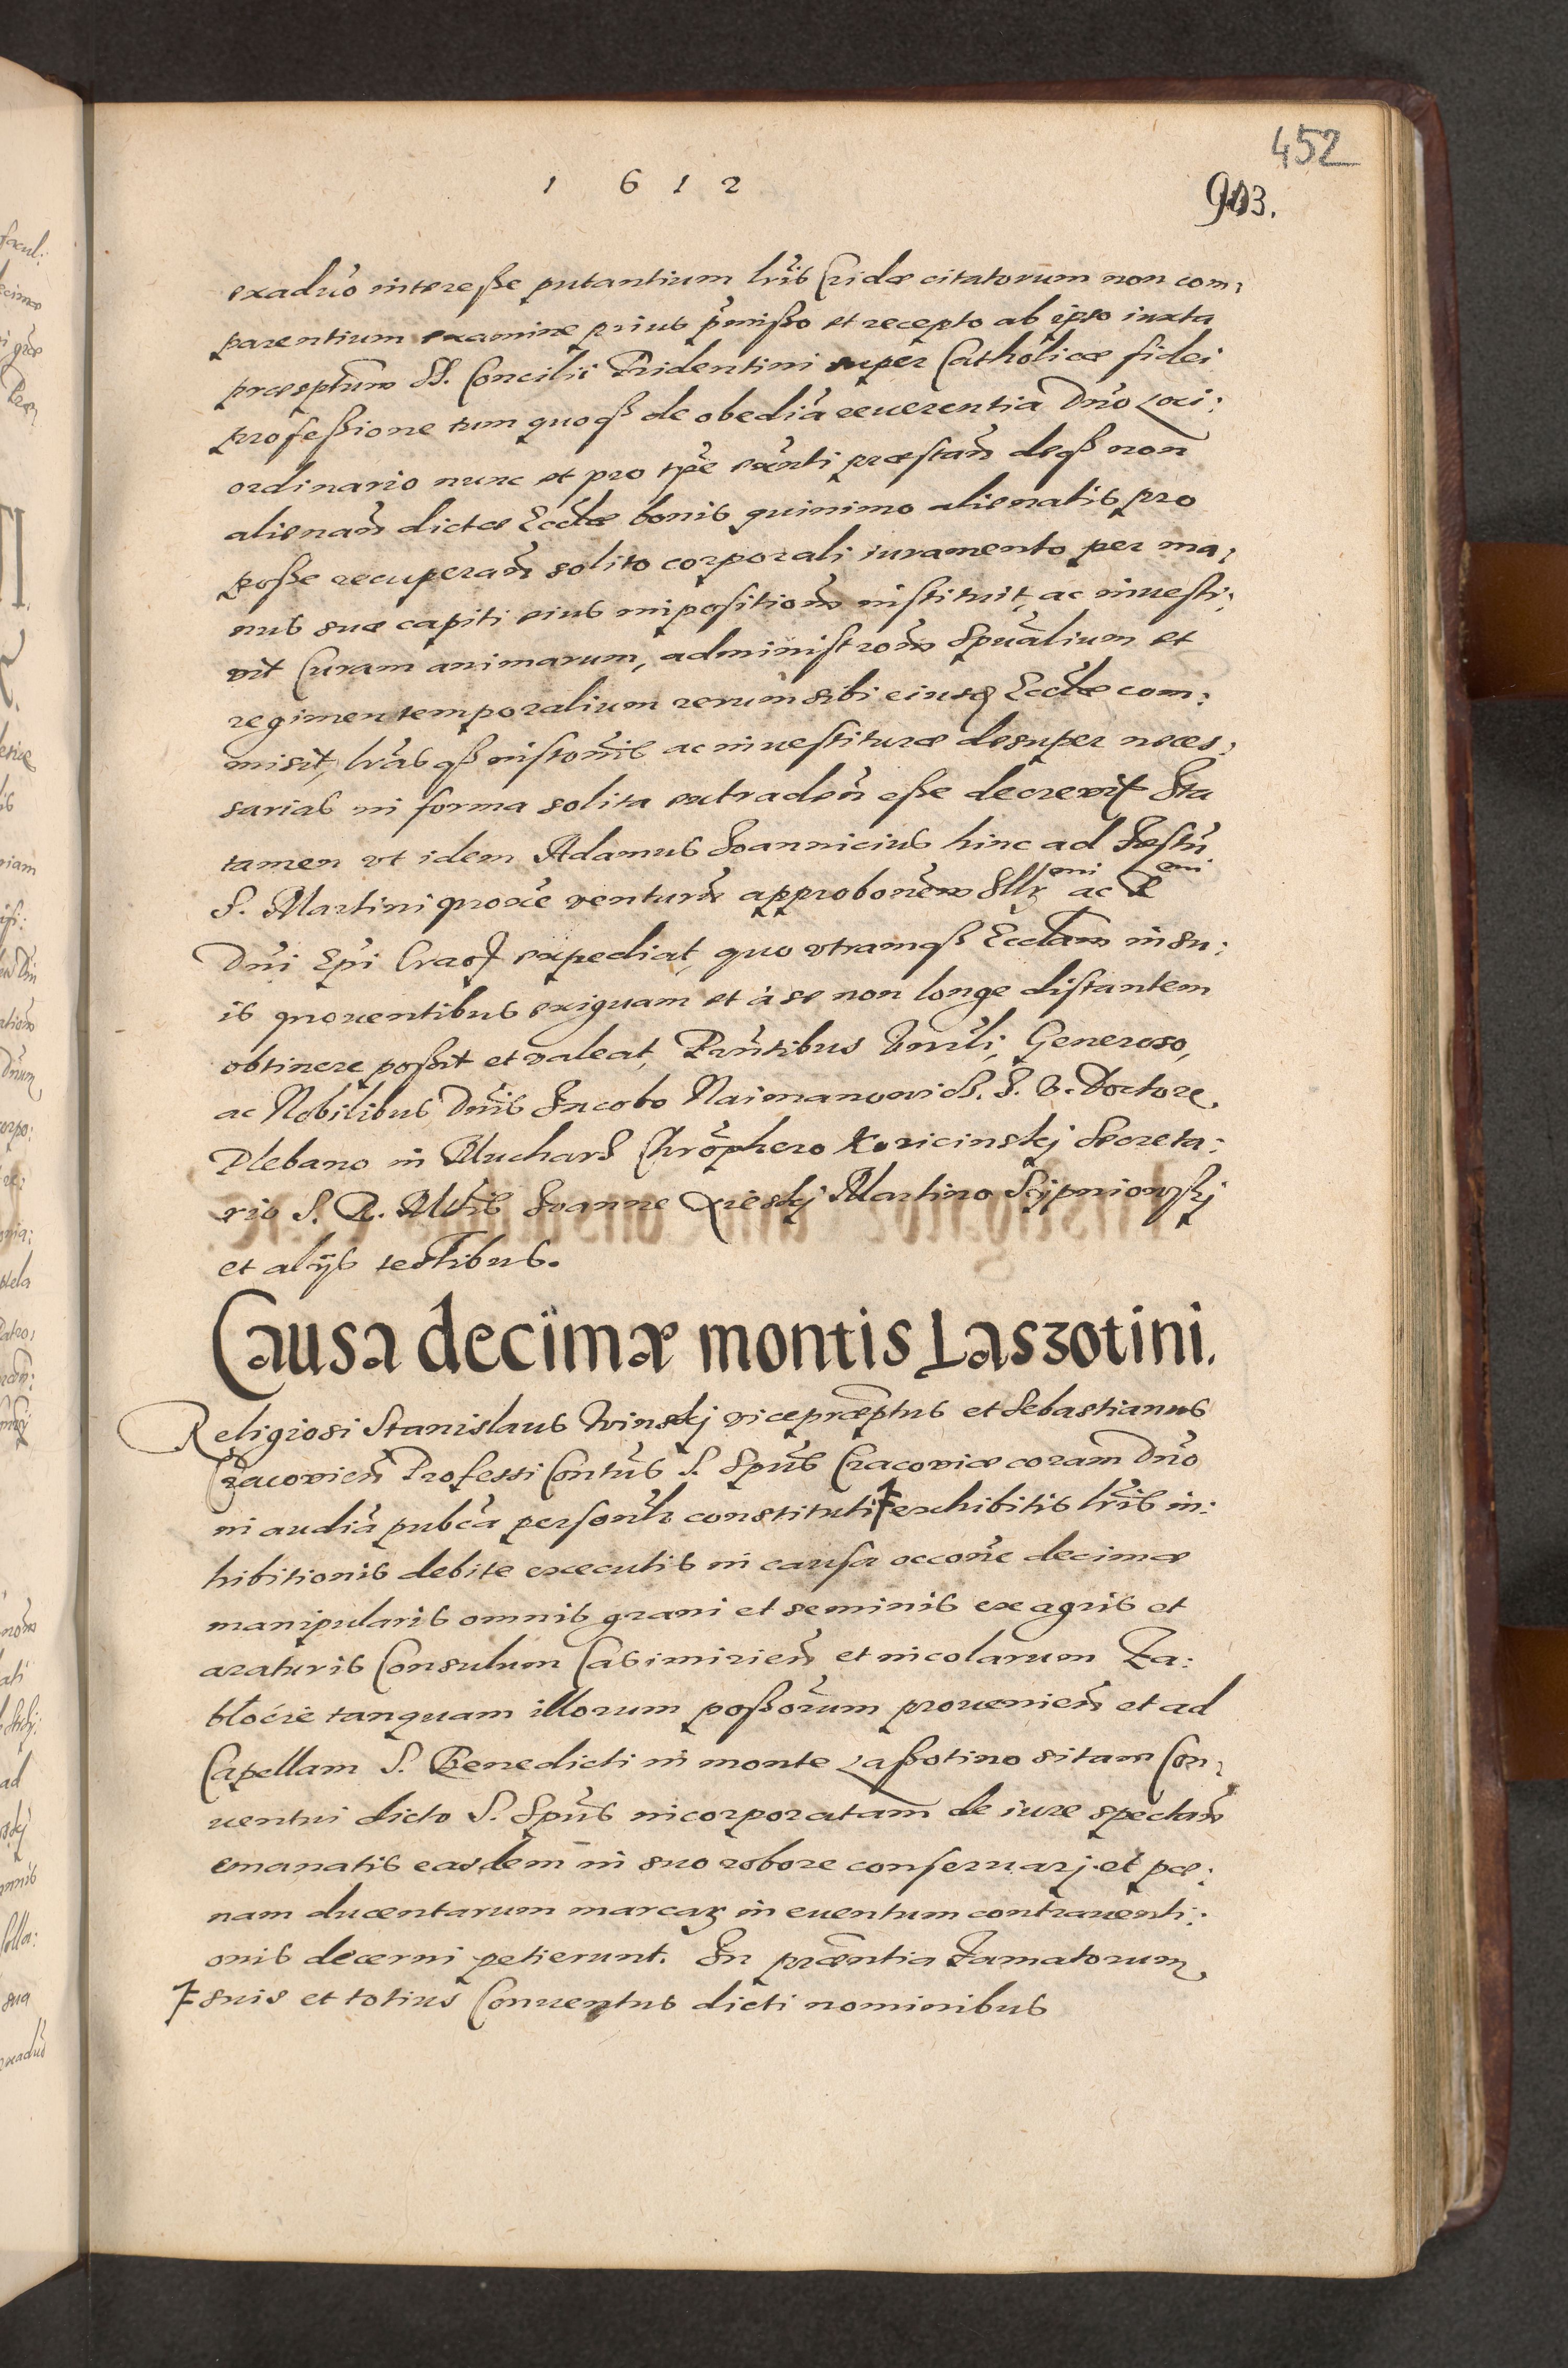 452
1 6 1 2
903.
exaduo interesse putantium lris Cridae citatorum non com:
parentium examine prius pmisso et recepto ab ipso iuxta
praeceptum SS. Concilii Tridentini super Catholicae fidei
professione tum quoq de obedia reuerentia Dno Loci:
ordinario nunc et pro tpe exnti praestan deq non
alienan dictae Ecclae bonis quinimo alienatis pro
posse recuperan solito corporali iuramento per ma:
nus suae capiti eius impositionem instituit, ac inuesti:
vit Curam animarum, administronem Spualium et
regimen temporalium rerum sibi eiusd Ecclae com:
misit, lras q instonis ac inuestiturae desuper neces:
sarias in forma solita extraden esse decrevit Ita
tamen vt idem Adamus Joannicius hinc ad Festu
S. Martini proxe venturu approbonem Illr mi ac R mi
Dni Epi Crac expediat, quo vtramq Ecclam in su:
is prouentibus exiguam et à se non longe distantem
obtinere possit et valeat, Pntibus Vnrli, Generoso,
ac Nobilibus Dnis Jacobo Naimanowicz. I. V. Doctore.
Plebano in Mucharz Chrophero Koricinskj Secreta:
rio S. R. Mttis Joanne Martino
et alijs testibus.
Causa decimae montis Laszotini.
Religiosi Stanislaus vicepraeptus et Sebastianus
Cracovien Professi Contus S. Spus Cracoviae coram Dno
in audia pubca personlr constituti ǂ exhibitis lris in:
hibitionis debite executis in causa occone decimae
manipularis omnis grani et seminis ex agris et
araturis Consulum Casimirien et incolarum Za:
blocie tanquam illorum possorum prouenien et ad
Capellam S. Benedicti in monte Lassotino sitam Con:
uentui dicto S. Spus incorporatam de iure spectan
emanatis easdem in suo robore conseruarj et pae:
nam ducentarum marcar in euentum contrauenti:
onis decerni petierunt. In praentia Famatorum
ǂ suis et totius Conuentus dicti nominibus